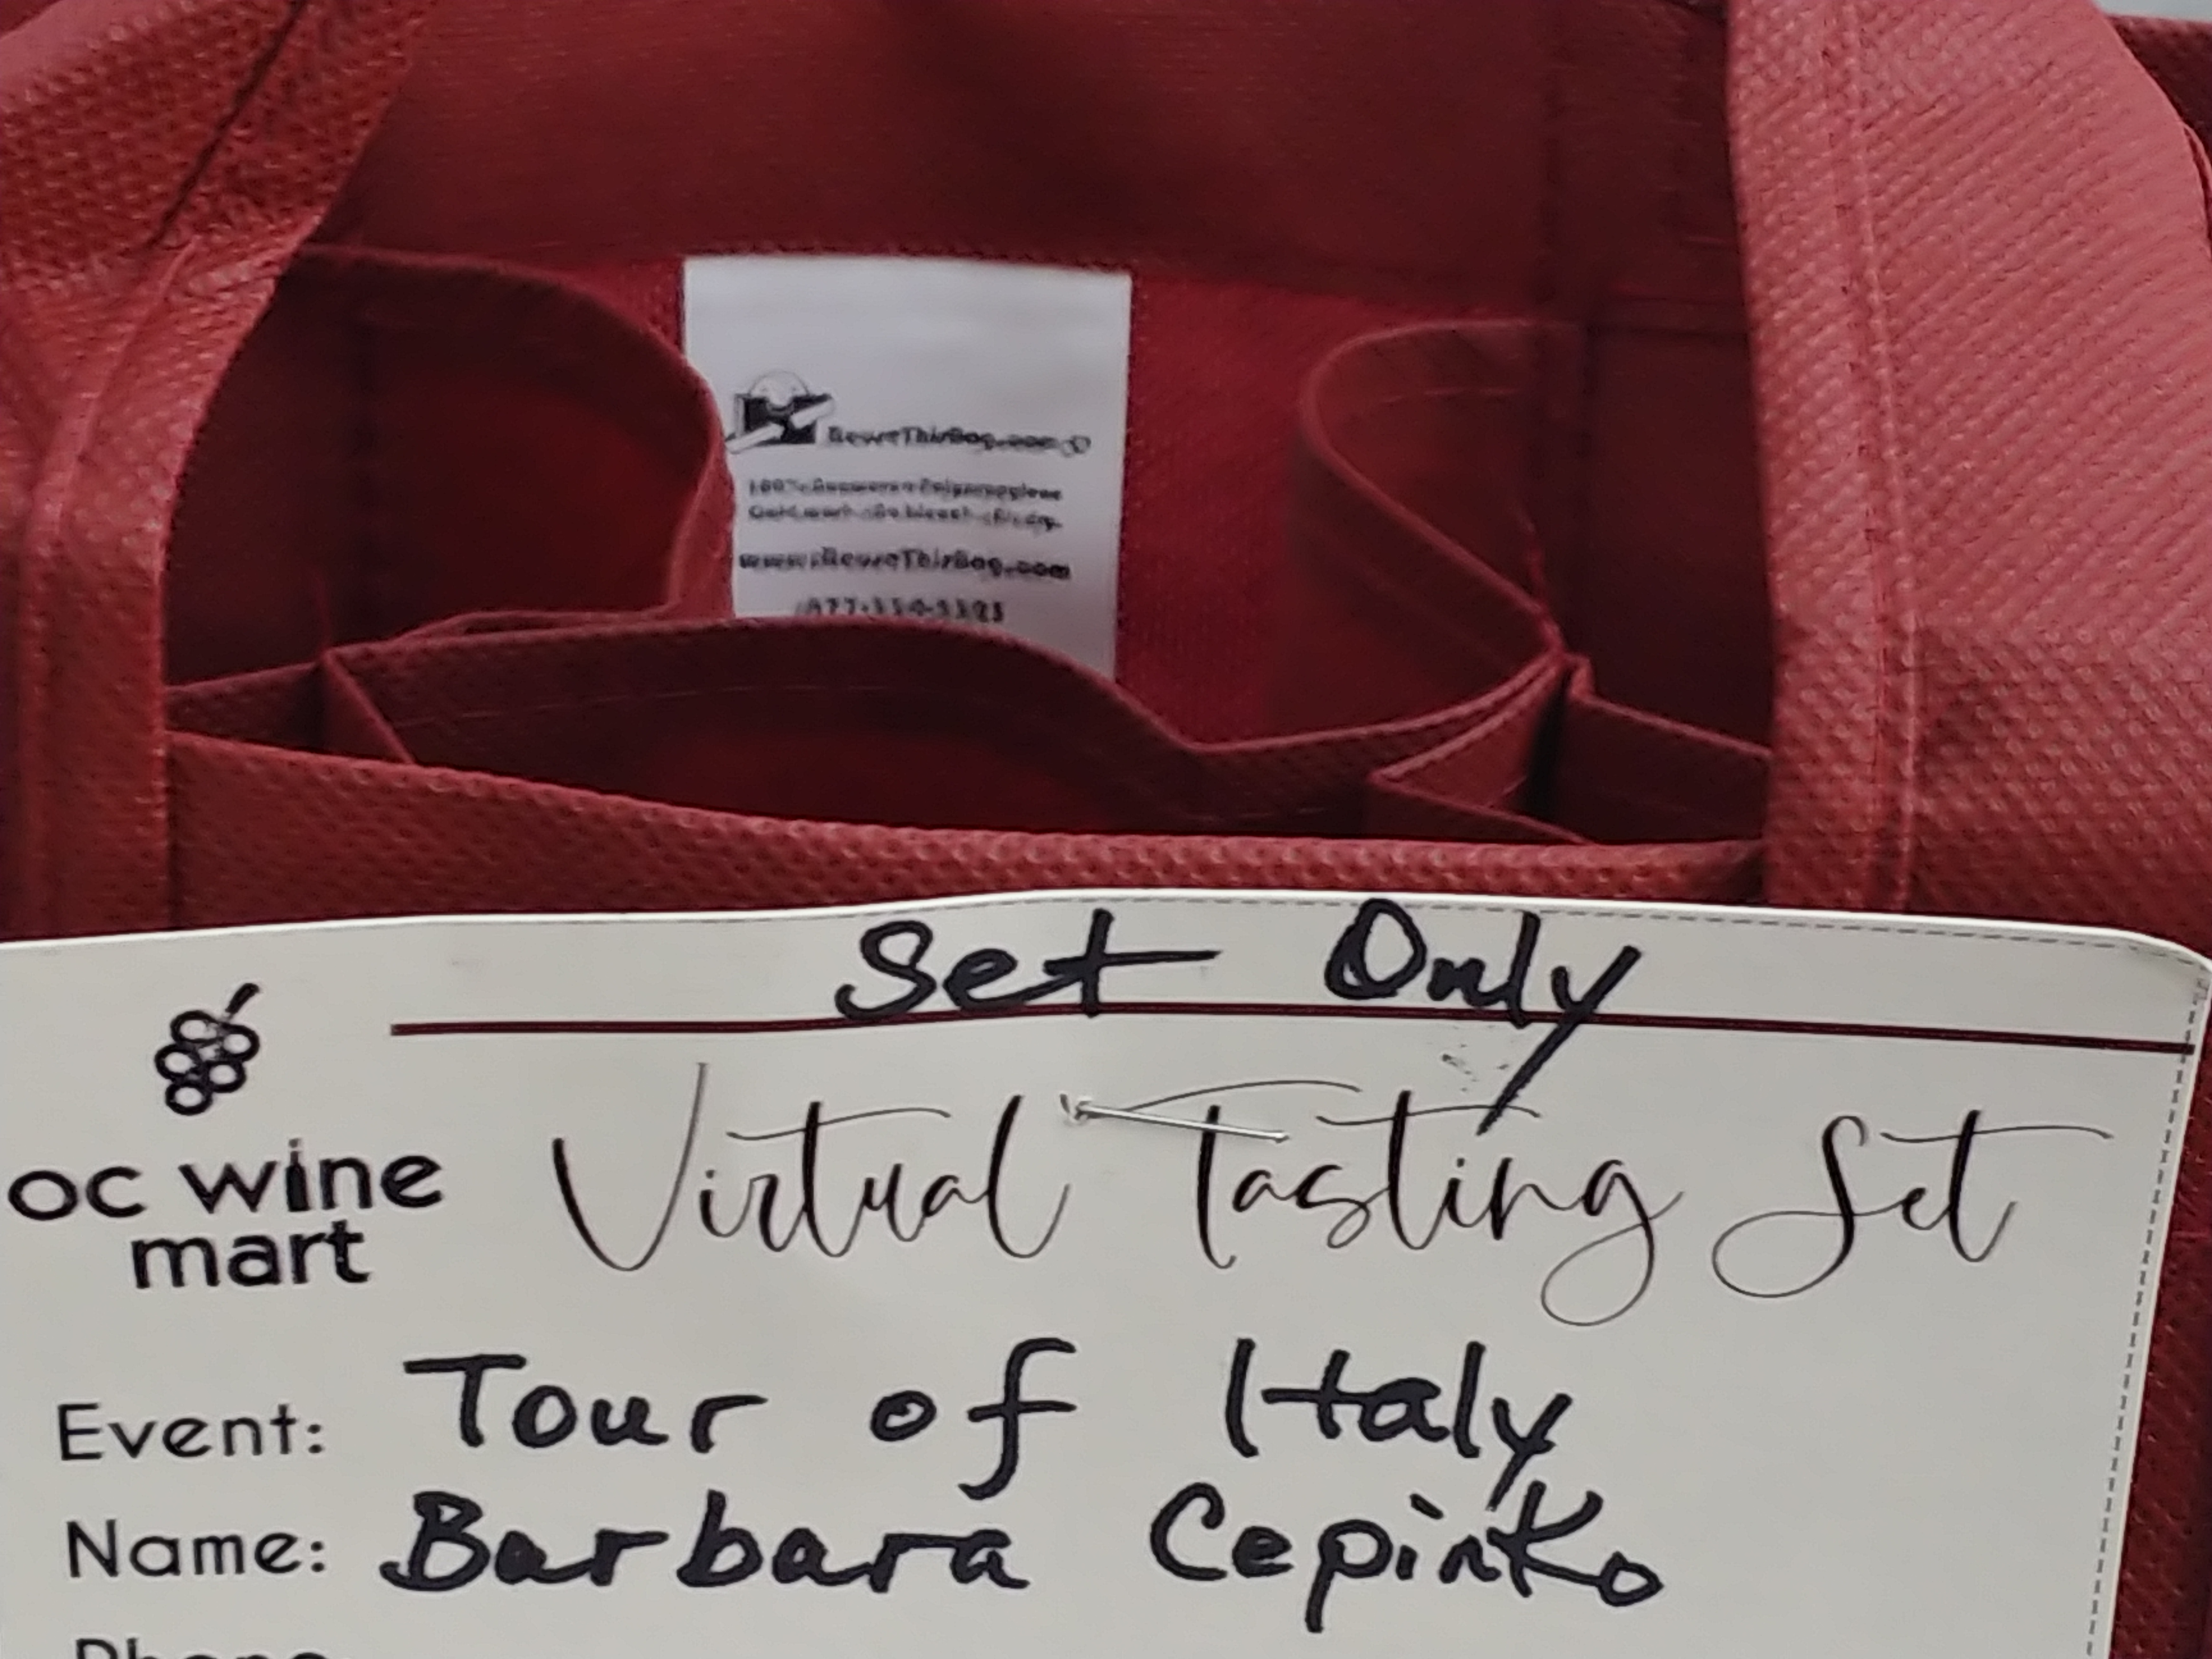 ReuseThisBag.com
www.ReuseThisBag.com
Set Only
oc wine
mart
Virtual Tasting Set
Event: Tour of Italy
Name: Barbara Cepinko
Phone